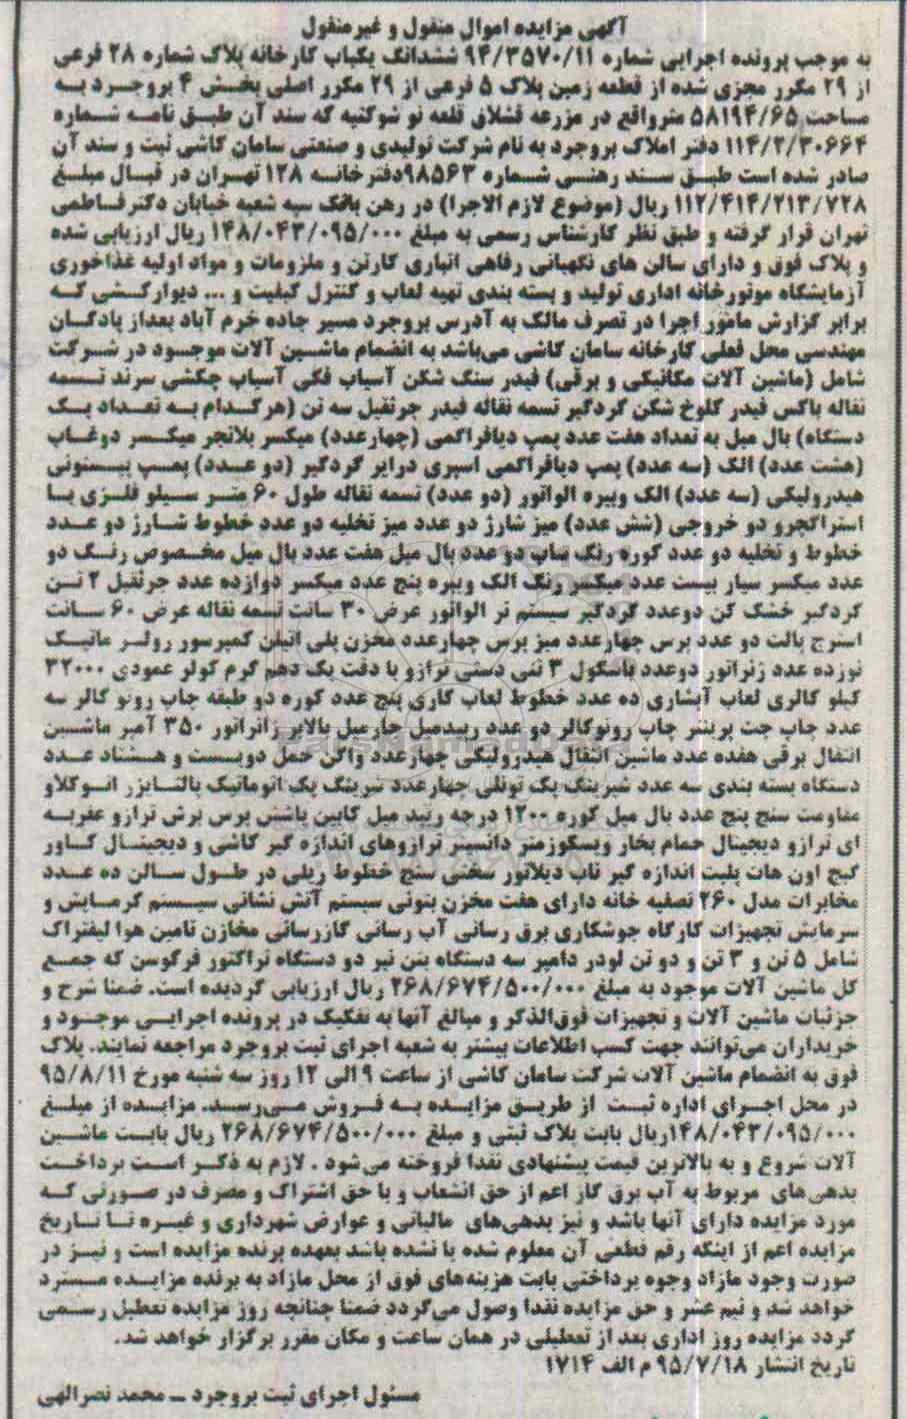 آگهی مزایده اموال منقول و غیرمنقول
به موجب پرونده اجرایی شماره ۹۴/۳۵۷۰/۱۱ ششدانگ یکباب کارخانه پلاک شماره ۲۸ فرعی
از ۲۹ مکرر مجزی شده از قطعه زمین پلاک ۵ فرعی از ۲۹ مکرر اصلی بخش ۴ بروجرد به
مساحت ۵۸۱۹۴/۶۵ مترواقع در مزرعه قشلاق قلعه نو شوکتیه که سند آن طبق نامه شماره
۱۱۴/۲/۳۰۶۶۴ دفتر املاک بروجرد به نام شرکت تولیدی و صنعتی سامان کاشی ثبت و سند آن
صادر شده است طبق سند رهنی شماره ۹۸۵۶۳دفترخانه ۱۲۸ تهران در قبال مبلغ
۱۱۲/۴۱۴/۲۱۳/۷۲۸ ریال (موضوع لازم الاجرا) در رهن بانک سپه شعبه خیابان دکترفاطمی
تهران قرار گرفته و طبق نظر کارشناس رسمی به مبلغ ۱۴۸/۰۴۳/۰۹۵/۰۰۰ ریال ارزیابی شده
و پلاک فوق و دارای سالن های نگهبانی رفاهی انباری کارتن و ملزومات و مواد اولیه غذاخوری
آزمایشگاه موتورخانه اداری تولید و بسته بندی تهیه لعاب و کنترل کیفیت و ... دیوارکشی که
برابر گزارش مامور اجرا در تصرف مالک به آدرس بروجرد مسیر جاده خرم آباد بعداز پادگان
مهندسی محل فعلی کارخانه سامان کاشی می‌باشد به انضمام ماشین آلات موجود در شرکت
شامل (ماشین آلات مکانیکی و برقی) فیدر سنگ شکن آسیاب فکی آسیاب چکشی سرند تسمه
نقاله باکس فیدر کلوخ شکن گردگیر تسمه نقاله فیدر جرثقیل سه تن (هرکدام به تعداد یک
دستگاه) بال میل به تعداد هفت عدد پمپ دیافراگمی (چهارعدد) میکسر بلانجر میکسر دوغاب
(هشت عدد) الک (سه عدد) پمپ دیافراگمی اسپری درایر گردگیر (دو عدد) پمپ پیستونی
هیدرولیکی (سه عدد) الک ویبره الواتور (دو عدد) تسمه نقاله طول ۶۰ متر سیلو فلزی با
استراکچرو دو خروجی (شش عدد) میز شارژ دو عدد میز تخلیه دو عدد خطوط شارژ دو عدد
خطوط و تخلیه دو عدد کوره رنگ ساب دو عدد بال میل هفت عدد بال میل مخصوص رنگ دو
عدد میکسر سیار بیست عدد میکسر رنگ الک ویبره پنج عدد میکسر دوازده عدد جرثقیل ۲ تن
گردگیر خشک کن دوعدد گردگیر سیستم تر الواتور عرض ۳۰ سانت تسمه نقاله عرض ۶۰ سانت
استرچ پالت دو عدد پرس چهارعدد میز پرس چهارعدد مخزن پلی اتیلن کمپرسور رولر ماتیک
نوزده عدد ژنراتور دوعدد باسکول ۳ تنی دستی ترازو با دقت یک دهم گرم کولر عمودی ۳۲۰۰۰
کیلو کالری لعاب آبشاری ده عدد خطوط لعاب کاری پنج عدد کوره دو طبقه چاپ روتو کالر سه
عدد چاپ جت پرینتر چاپ روتوکالر دو عدد رپیدمیل جارمیل بالابر ژانراتور ۳۵۰ آمپر ماشین
انتقال برقی هفده عدد ماشین انتقال هیدرولیکی چهارعدد واگن حمل دویست و هشتاد عدد
دستگاه بسته بندی سه عدد شیرینگ پک تونلی چهارعدد شرینگ پک اتوماتیک پالتایزر اتوکلاو
مقاومت سنج پنج عدد بال میل کوره ۱۲۰۰ درجه رپید میل کابین پاشش پرس برش ترازو عقربه
ای ترازو دیجیتال حمام بخار ویسکوزمتر دانسیتر ترازوهای اندازه گیر کاشی و دیجیتال کاور
گیج اون هات پلیت اندازه گیر تاب دیلاتور سختی سنج خطوط ریلی در طول سالن ده عدد
مخابرات مدل ۲۶۰ تصفیه خانه دارای هفت مخزن بتونی سیستم آتش نشانی سیستم گرمایش و
سرمایش تجهیزات کارگاه جوشکاری برق رسانی آب رسانی گازرسانی مخازن تامین هوا لیفتراک
شامل ۵ تن و ۳ تن و دو تن لودر دامپر سه دستگاه بنن تیر دو دستگاه تراکتور فرگوسن که جمع
کل ماشین آلات موجود به مبلغ ۲۶۸/۶۷۴/۵۰۰/۰۰۰ ریال ارزیابی گردیده است. ضمنا شرح و
جزئیات ماشین آلات و تجهیزات فوق‌الذکر و مبالغ آنها به تفکیک در پرونده اجرایی موجود و
خریداران می‌توانند جهت کسب اطلاعات بیشتر به شعبه اجرای ثبت بروجرد مراجعه نمایند. پلاک
فوق به انضمام ماشین آلات شرکت سامان کاشی از ساعت ۹ الی ۱۲ روز سه شنبه مورخ ۹۵/۸/۱۱
در محل اجرای اداره ثبت از طریق مزایده به فروش می‌رسد. مزایده از مبلغ
۱۴۸/۰۴۳/۰۹۵/۰۰۰ریال بابت پلاک ثبتی و مبلغ ۲۶۸/۶۷۴/۵۰۰/۰۰۰ ریال بابت ماشین
آلات شروع و به بالاترین قیمت پیشنهادی نقدا فروخته می‌شود . لازم به ذکر است پرداخت
بدهی‌های مربوط به آب برق گاز اعم از حق انشعاب و یا حق اشتراک و مصرف در صورتی که
مورد مزایده دارای آنها باشد و نیز بدهی‌های مالیاتی و عوارض شهرداری و غیره تا تاریخ
مزایده اعم از اینکه رقم قطعی آن معلوم شده یا نشده باشد بعهده برنده مزایده است و نیز در
صورت وجود مازاد وجوه پرداختی بابت هزینه‌های فوق از محل مازاد به برنده مزایده مسترد
خواهد شد و نیم عشر و حق مزایده نقدا وصول می‌گردد ضمنا چنانچه روز مزایده تعطیل رسمی
گردد مزایده روز اداری بعد از تعطیلی در همان ساعت و مکان مقرر برگزار خواهد شد.
تاریخ انتشار ۹۵/۷/۱۸ م الف ۱۷۱۴
مسئول اجرای ثبت بروجرد ــ محمد نصرالهی